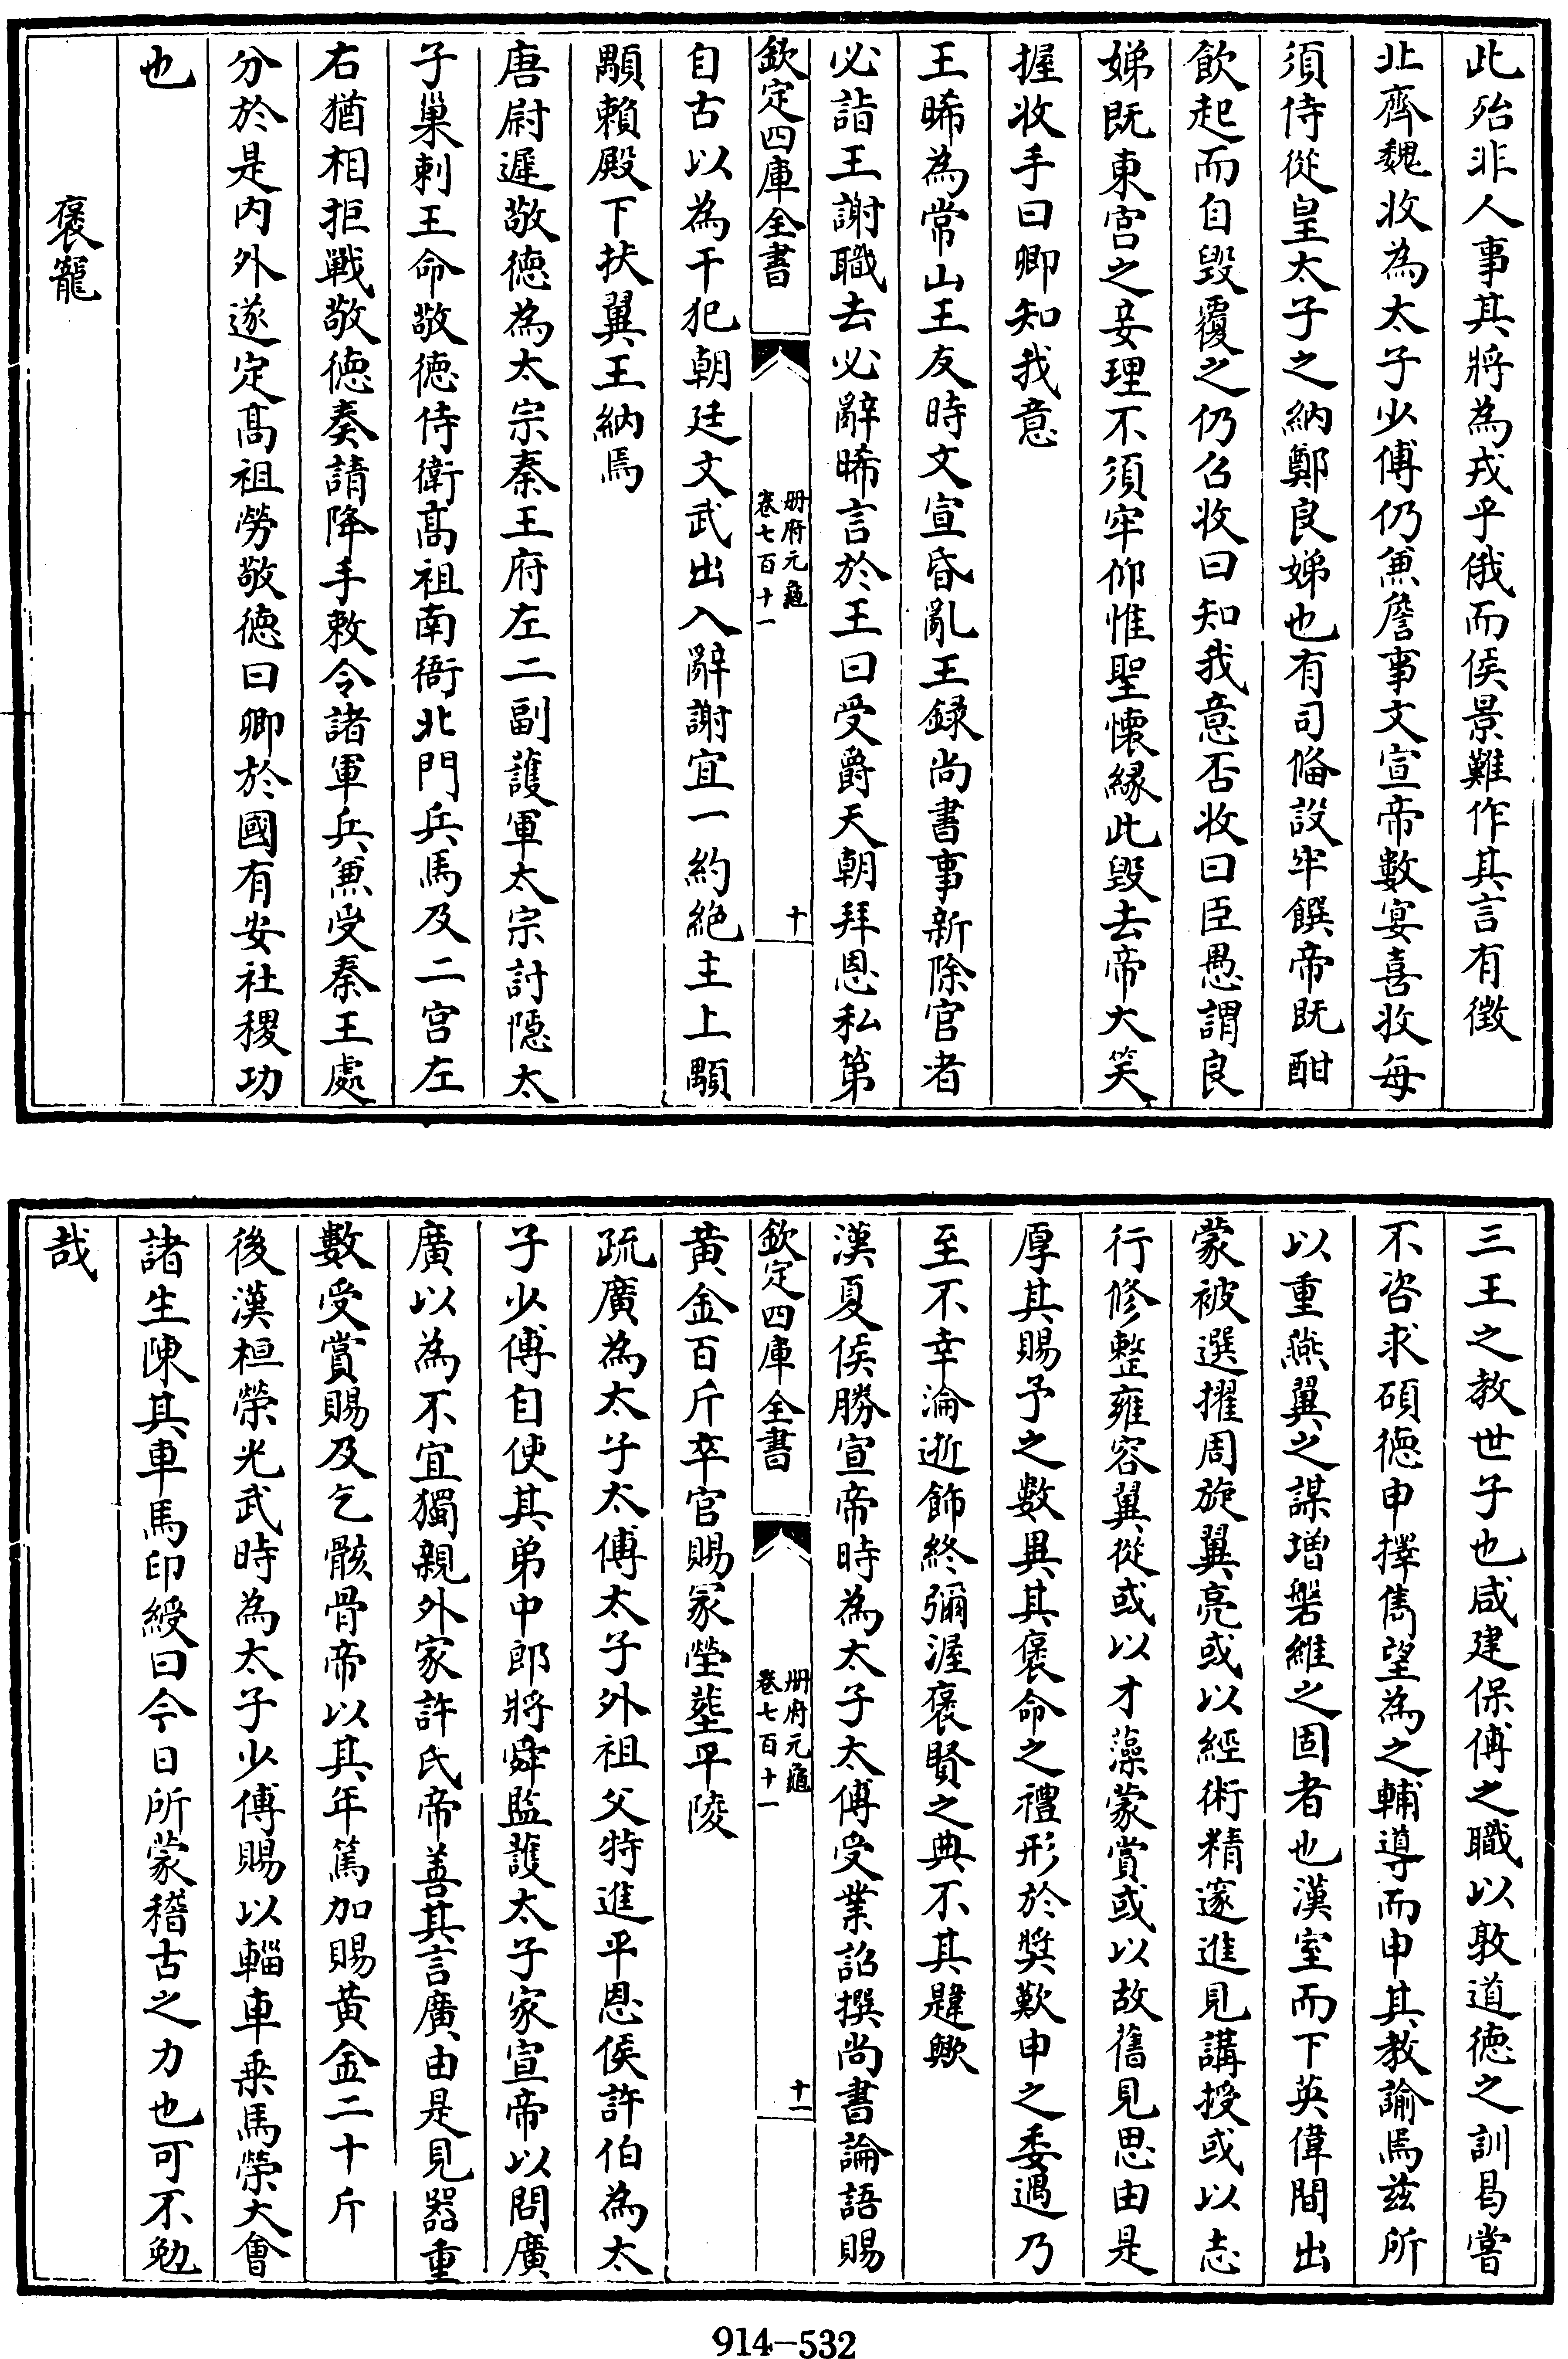 此殆非人事其將為戎乎俄而侯景難作其言有徴
北齊魏收為太子少傅仍兼詹事文宣帝數宴喜收每
須侍從皇太子之納鄭良娣也有司俻設牢饌帝既酣
飲起而自毁覆之仍召收曰知我意否收曰臣愚謂良
娣既東宫之妾理不須牢仰惟聖懐縁此毁去帝大笑
握收手曰卿知我意
王晞為常山王友時文宣昏亂王録尚書事新除官者
必詣王謝職去必辭晞言於王曰受爵天朝拜恩私第
欽定四庫全書
册府元龜
卷七百十一
十
自古以為干犯朝廷文武出入辭謝宜一約絶主上顒
顒賴殿下扶翼王納焉
唐尉遲敬徳為太宗秦王府左二副䕶軍太宗討隱太
子巢剌王命敬徳侍衛髙祖南衙北門兵馬及二宫左
右猶相拒戰敬徳奏請降手敕令諸軍兵兼受秦王處
分於是内外遂定髙祖勞敬徳曰卿於國有安社稷功
也
褒寵
三王之教世子也咸建保傅之職以敦道徳之訓曷嘗
不咨求碩徳申擇雋望為之輔導而申其教諭焉兹所
以重燕翼之謀増磐維之固者也漢室而下英偉間出
蒙被選擢周旋翼亮或以經術精邃進見講授或以志
行修整雍容翼從或以才藻蒙賞或以故舊見思由是
厚其賜予之數異其褒命之禮形於奬歎申之委遇乃
至不幸淪逝飾終彌渥褒賢之典不其韙歟
漢夏侯勝宣帝時為太子太傅受業詔撰尚書論語賜
欽定四庫全書
册府元龜
卷七百十一
十一
黄金百斤卒官賜冡塋塟平陵
疏廣為太子太傅太子外祖父特進平恩侯許伯為太
子少傅自使其弟中郎將舜監䕶太子家宣帝以問廣
廣以為不宜獨親外家許氏帝善其言廣由是見器重
數受賞賜及乞骸骨帝以其年篤加賜黄金二十斤
後漢桓榮光武時為太子少傅賜以輜車乗馬榮大會
諸生陳其車馬印綬曰今日所蒙稽古之力也可不勉
哉
914-532